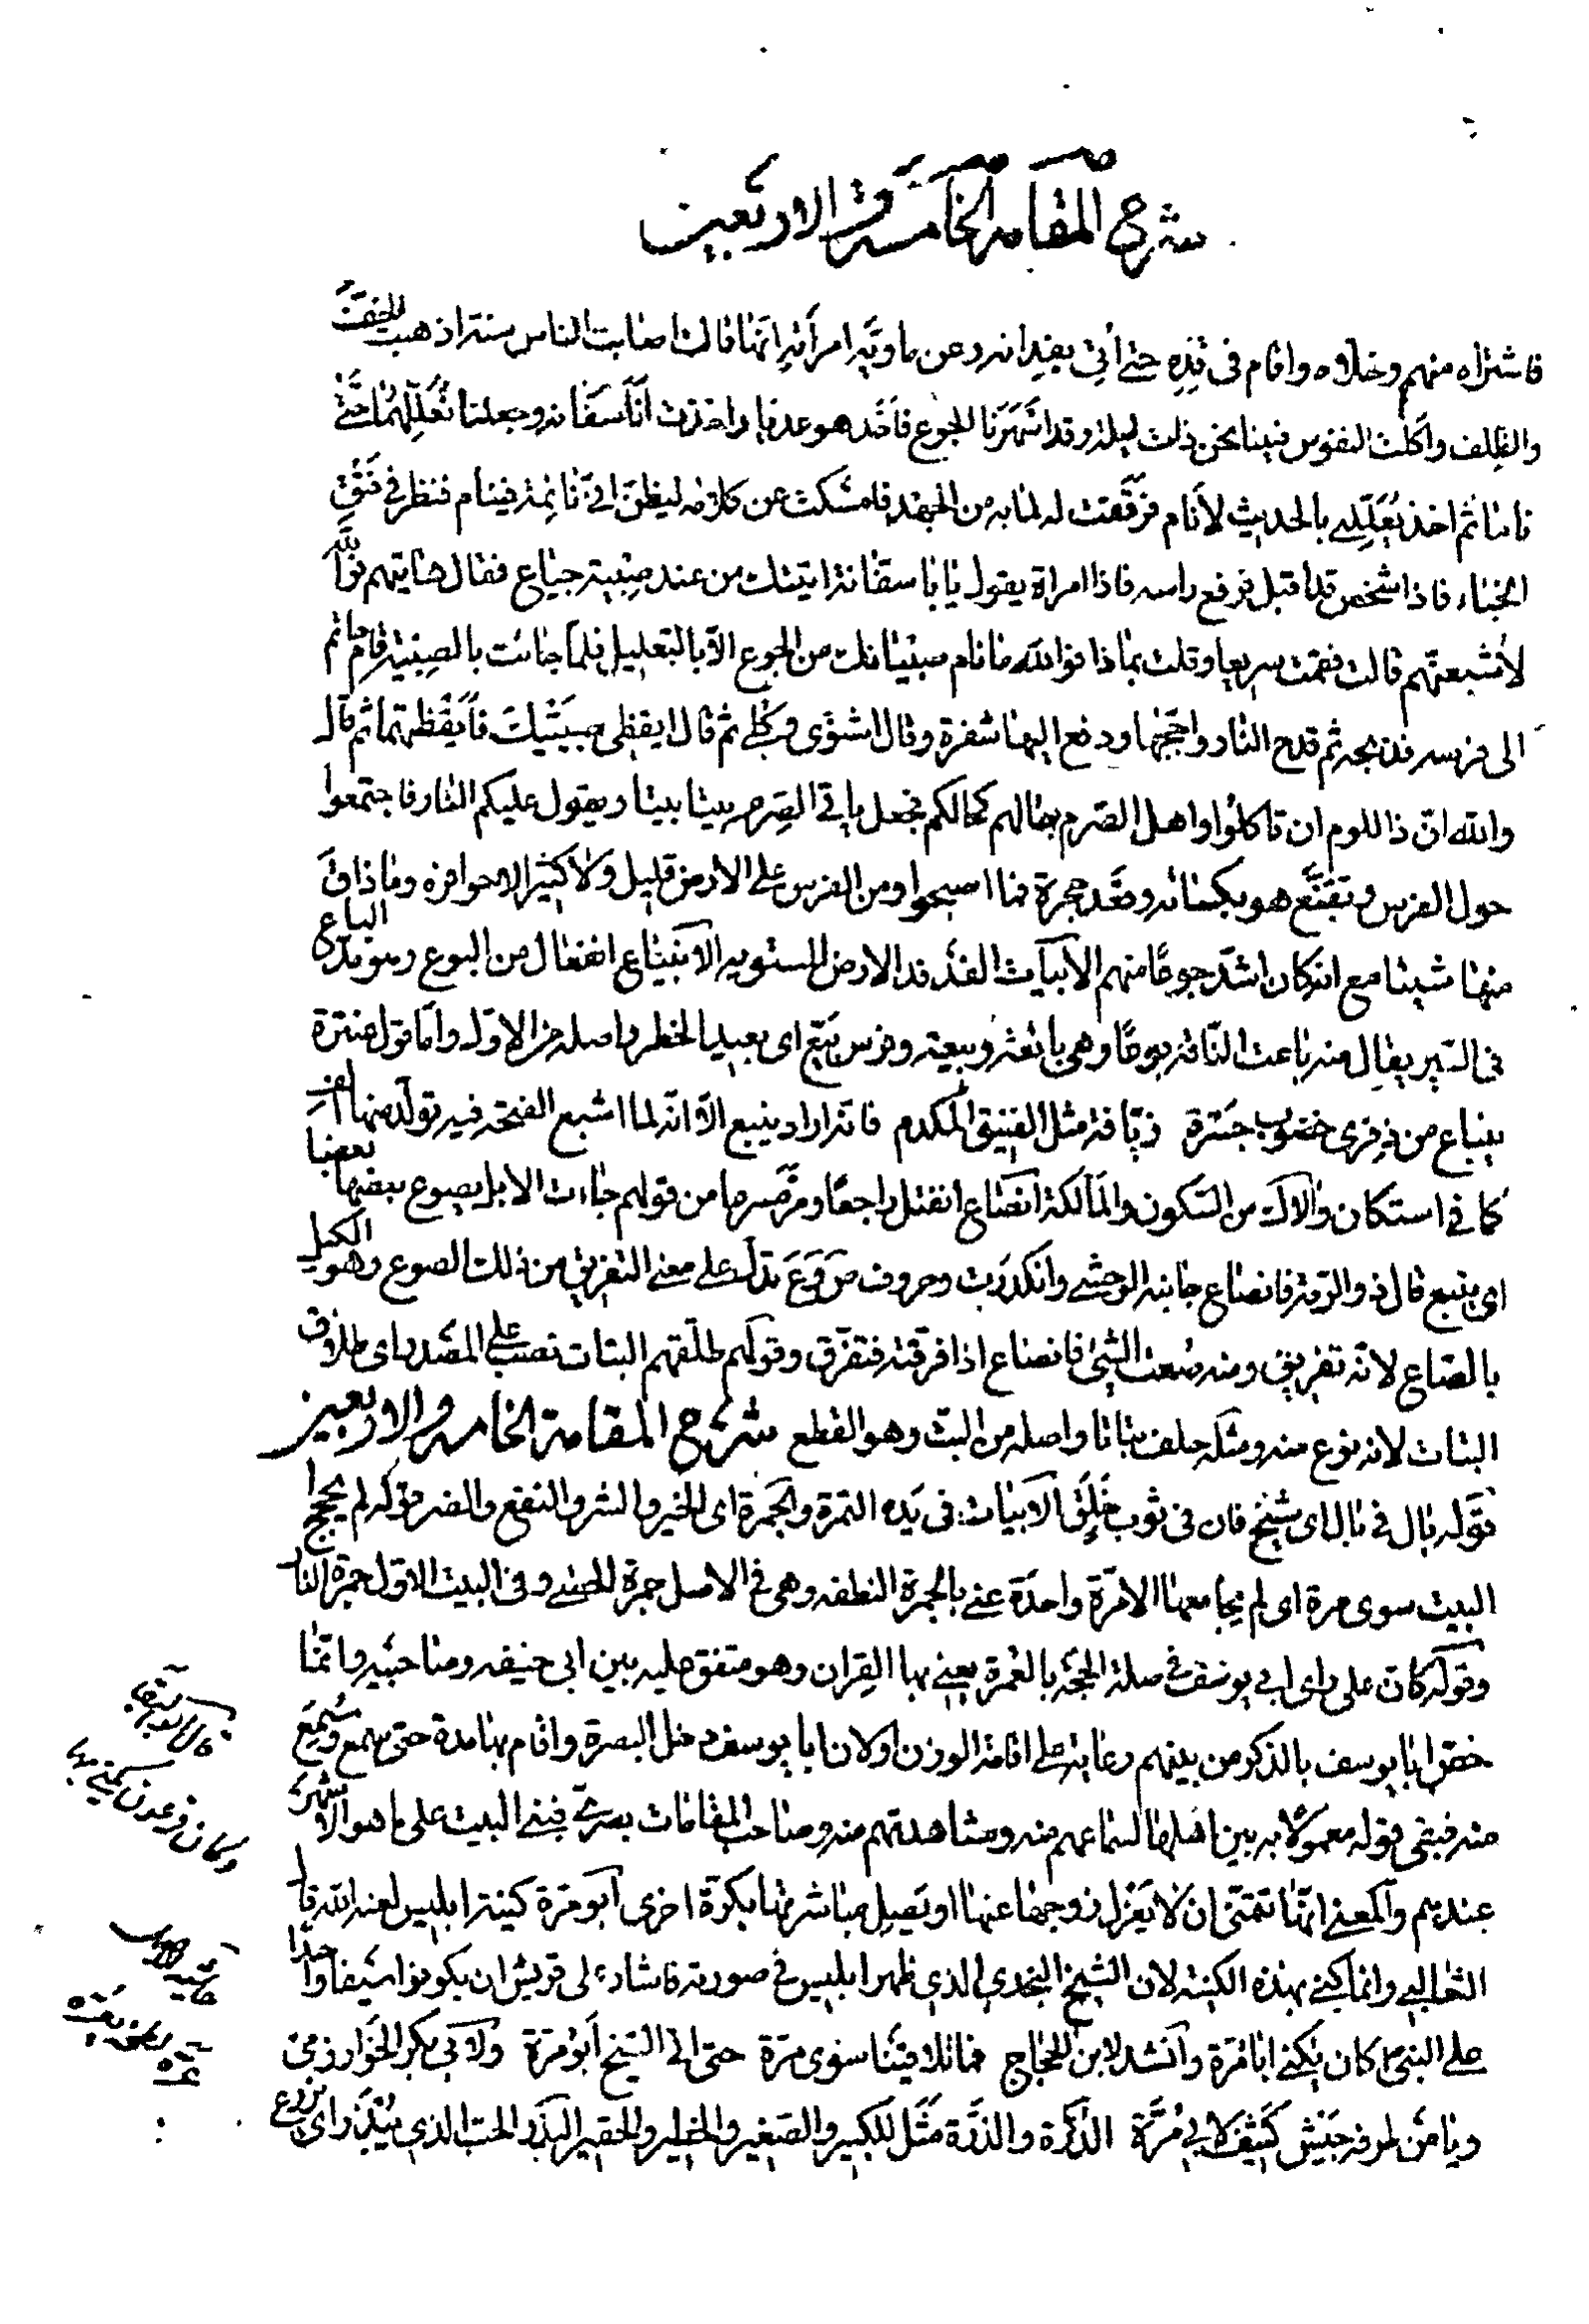 شرح المقامة الخامسة والاربعين
فاشتراه منهم وخلاه واقام في قده حتى أتي بفدائه وعن ماويّة امرأته انّها قالت اصابت الناس سنة اذهبت الخف
والظلف واكلت النفوس فبينا نحن ذات ليلة وقد اسهرنا الجوع فأخذ هو عديا واخذت أنا سفانة وجعلنا نعللهما حتى
ناما ثم اخذ يعللني بالحديث لأنام فرققت له لما به من الجهد فامسكت عن كلامه ليظن اني نائمة فينام فنظر في فتق
الخباء فاذا شخص قد أقبل فرفع راسه فاذا امراة يقول يا با سفانة اتيتك من عند صبية جياع فقال هاتيهم فوالله
لأشبعنهم قالت فقمت سريعا وقلت بماذا فوالله ما نام صبيانك من الجوع الا بالتعليل فلما جائت بالصبية قام حاتم
الى فرسه فذبحه ثم قدح النار واججها ودفع اليها شفرة وقال اشوى وكلي ثم قال ايقظي صبيتك فأيقظتهما ثم قال
والله ان ذا للوم ان تاكلوا واهل الصرم حالهم كحالكم فجعل ياتي الصرم بيتا بيتا ويقول عليكم النار فاجتمعوا
حول الفرس وتقنع هو بكسائه وقعد حجرة فما اصبحوا ومن الفرس على الارض قليل ولا كثير الا حوافره وما ذاق
منها شيئا مع انه كان اشد جوعا منهم الأبيات الفدفد الارض المستوية الانبياع انفعال من البوع وهو مد الباع
في السير يقال منه باعت الناقة بوعا وهي بائعة وبيعة وفرس بيّع اى بعيد الخطو واصله من الاول واما قول عنترة
ينباع من ذفرى غضوب جسرة زيافة مثل الفنيق المكدم فانه اراد ينبع الا انه لما اشبع الفتحة فيه تولد منها الف
كما في استكان والآك من السكون والمألكة انصاع انفتل راجعا ومر مسرعا من قولهم جاءت الابل يصوع بعضها بعضا
اى يتبع قال ذو الرمة فانصاع جانبه الوحشي وانكدرت وحروف ص و ع تدل على معنى التفريق من ذلك الصوع وهو الكيل
بالصاع لانه تفريق ومنه صعت الشئ فانصاع اذا فرقته فتفرق وقولهم طلقهم البتات نصب على المصدر اى طلاق
البتات لانه نوع منه ومثله حلف بتاتا واصله من البت وهو القطع شرح المقامة الخامسة والاربعين
قوله بال في بال اى شيخ فان في ثوب خلق الأبيات في يده التمرة والجمرة اى الخير والشر والنفع والضر قوله لم يحجج
البيت سوى مرة اى لم يجامعها الا مرة واحدة عنى بالجمرة النطفة وهي في الاصل جمرة للحصى وفي البيت الاول جمرة النار
وقوله كان على راى ابي يوسف في صلة الحجة بالعمرة يعني بها القران وهو متفق عليه بين ابى حنيفة وصاحبيه وانما
خص ابا يوسف بالذكر من بينهم رعاية على اقامة الوزن او لان ابا يوسف دخل البصرة واقام بها مدة حتى سمع وسمع
منه فبقي قوله معمولا به بين اهلها لسماعهم منه ومشاهدتهم منه وصاحب المقامات بصرى فبنى البيت على ما هو الاشهر
عندهم والمعنى انها تتمنى ان لا يعزل زوجها عنها او يصل مباشرتها بكرة اخرى أبو مرة كنية ابليس لعنه الله قال
الثعالبي وانما كني بهذه الكنية لان الشيخ النجدي الذي ظهر ابليس في صورته فاشار على قريش ان يكونوا سيفا واحدا
على النبى كان يكنى ابا مرة وأنشد لابن الحجاج فما تلاقينا سوى مرة حتى اتى الشيخ أبو مرة ولابي بكر الخوارزمي
ويا من طرفه جيش كثيف لابي مرة الذرة والدرة مثل للكبير والصغير والخطير والحقير البذر الحب الذي يبذر اى يزرع